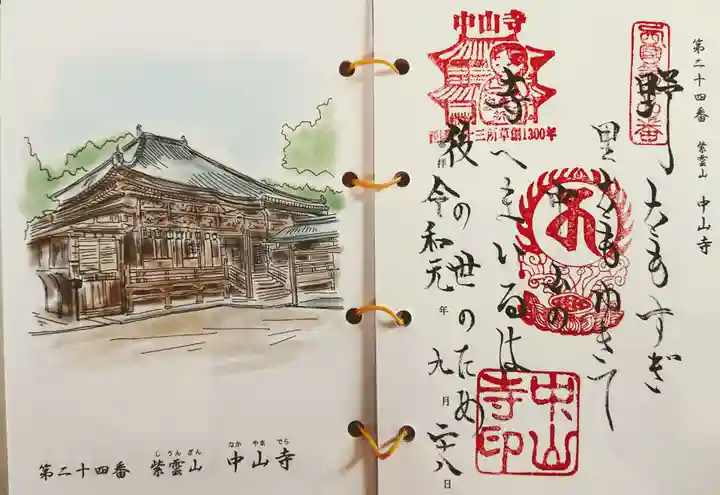 しうんざん なかやまでら
第二十四番 紫雲山 中山寺
第二十四番 紫雲山 中山寺
野をもすぎ
里をもゆきて
中山の
寺へまいるは
後の世のため
令和元年九月廿八日
中山寺
三所草創1300年
中山寺印